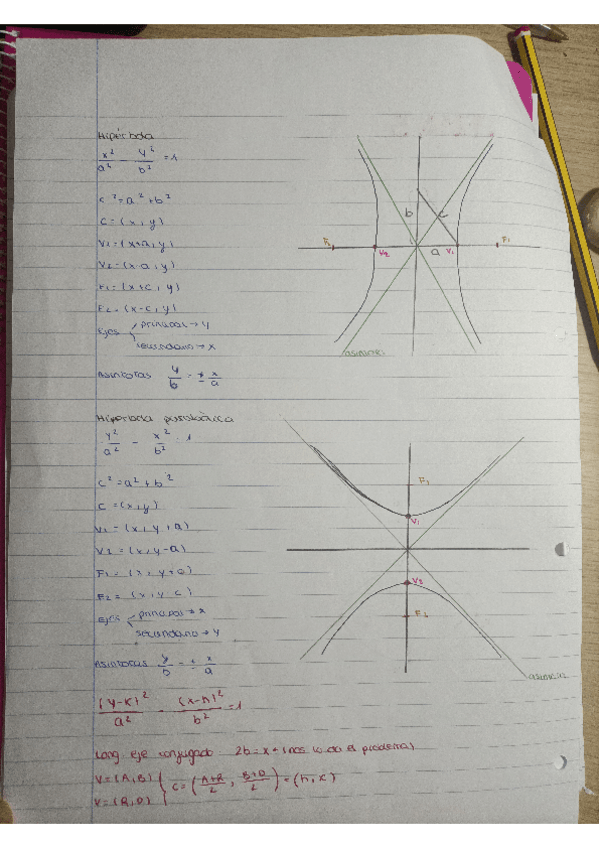 Hipérbola
x²/a² - y²/b² = 1
c² = a² + b²
C = (x, y)
V1 = (x+a, y)
V2 = (x-a, y)
F1 = (x+c, y)
F2 = (x-c, y)
Ejes principal → y
secundario → x
Asíntotas y/b = ± x/a
b
c
a
F2
V2
V1
F1
asíntotas
Hiperbola
y²/a² - x²/b² = 1
c² = a² + b²
C = (x, y)
V1 = (x, y+a)
V2 = (x, y-a)
F1 = (x, y+c)
F2 = (x, y-c)
Ejes principal → x
secundario → y
Asíntotas y/b = ± x/a
F1
V1
V2
F2
(y-k)²/a² - (x-h)²/b² = 1
Long eje conjugado 2b = x → (nos lo da el problema)
V = (A, B)
C = (A+R/2, B+D/2) = (h, k)
V = (R, D)